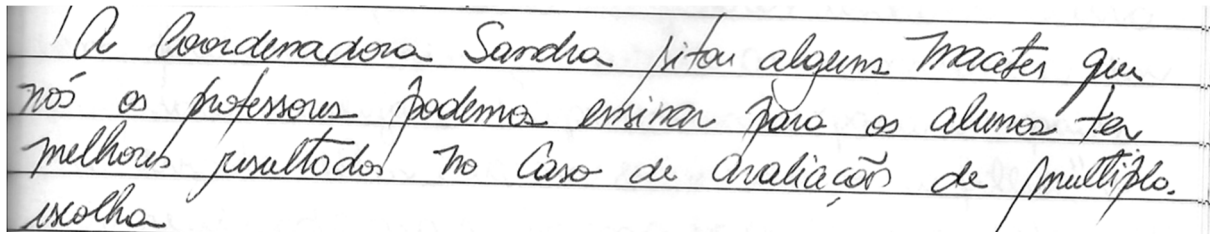 A Coordenadora Sandra sitou alguns macetes que
nós os professores podemos ensinar para os alunos ter
melhores resultados no caso de avaliação de multipla
escolha